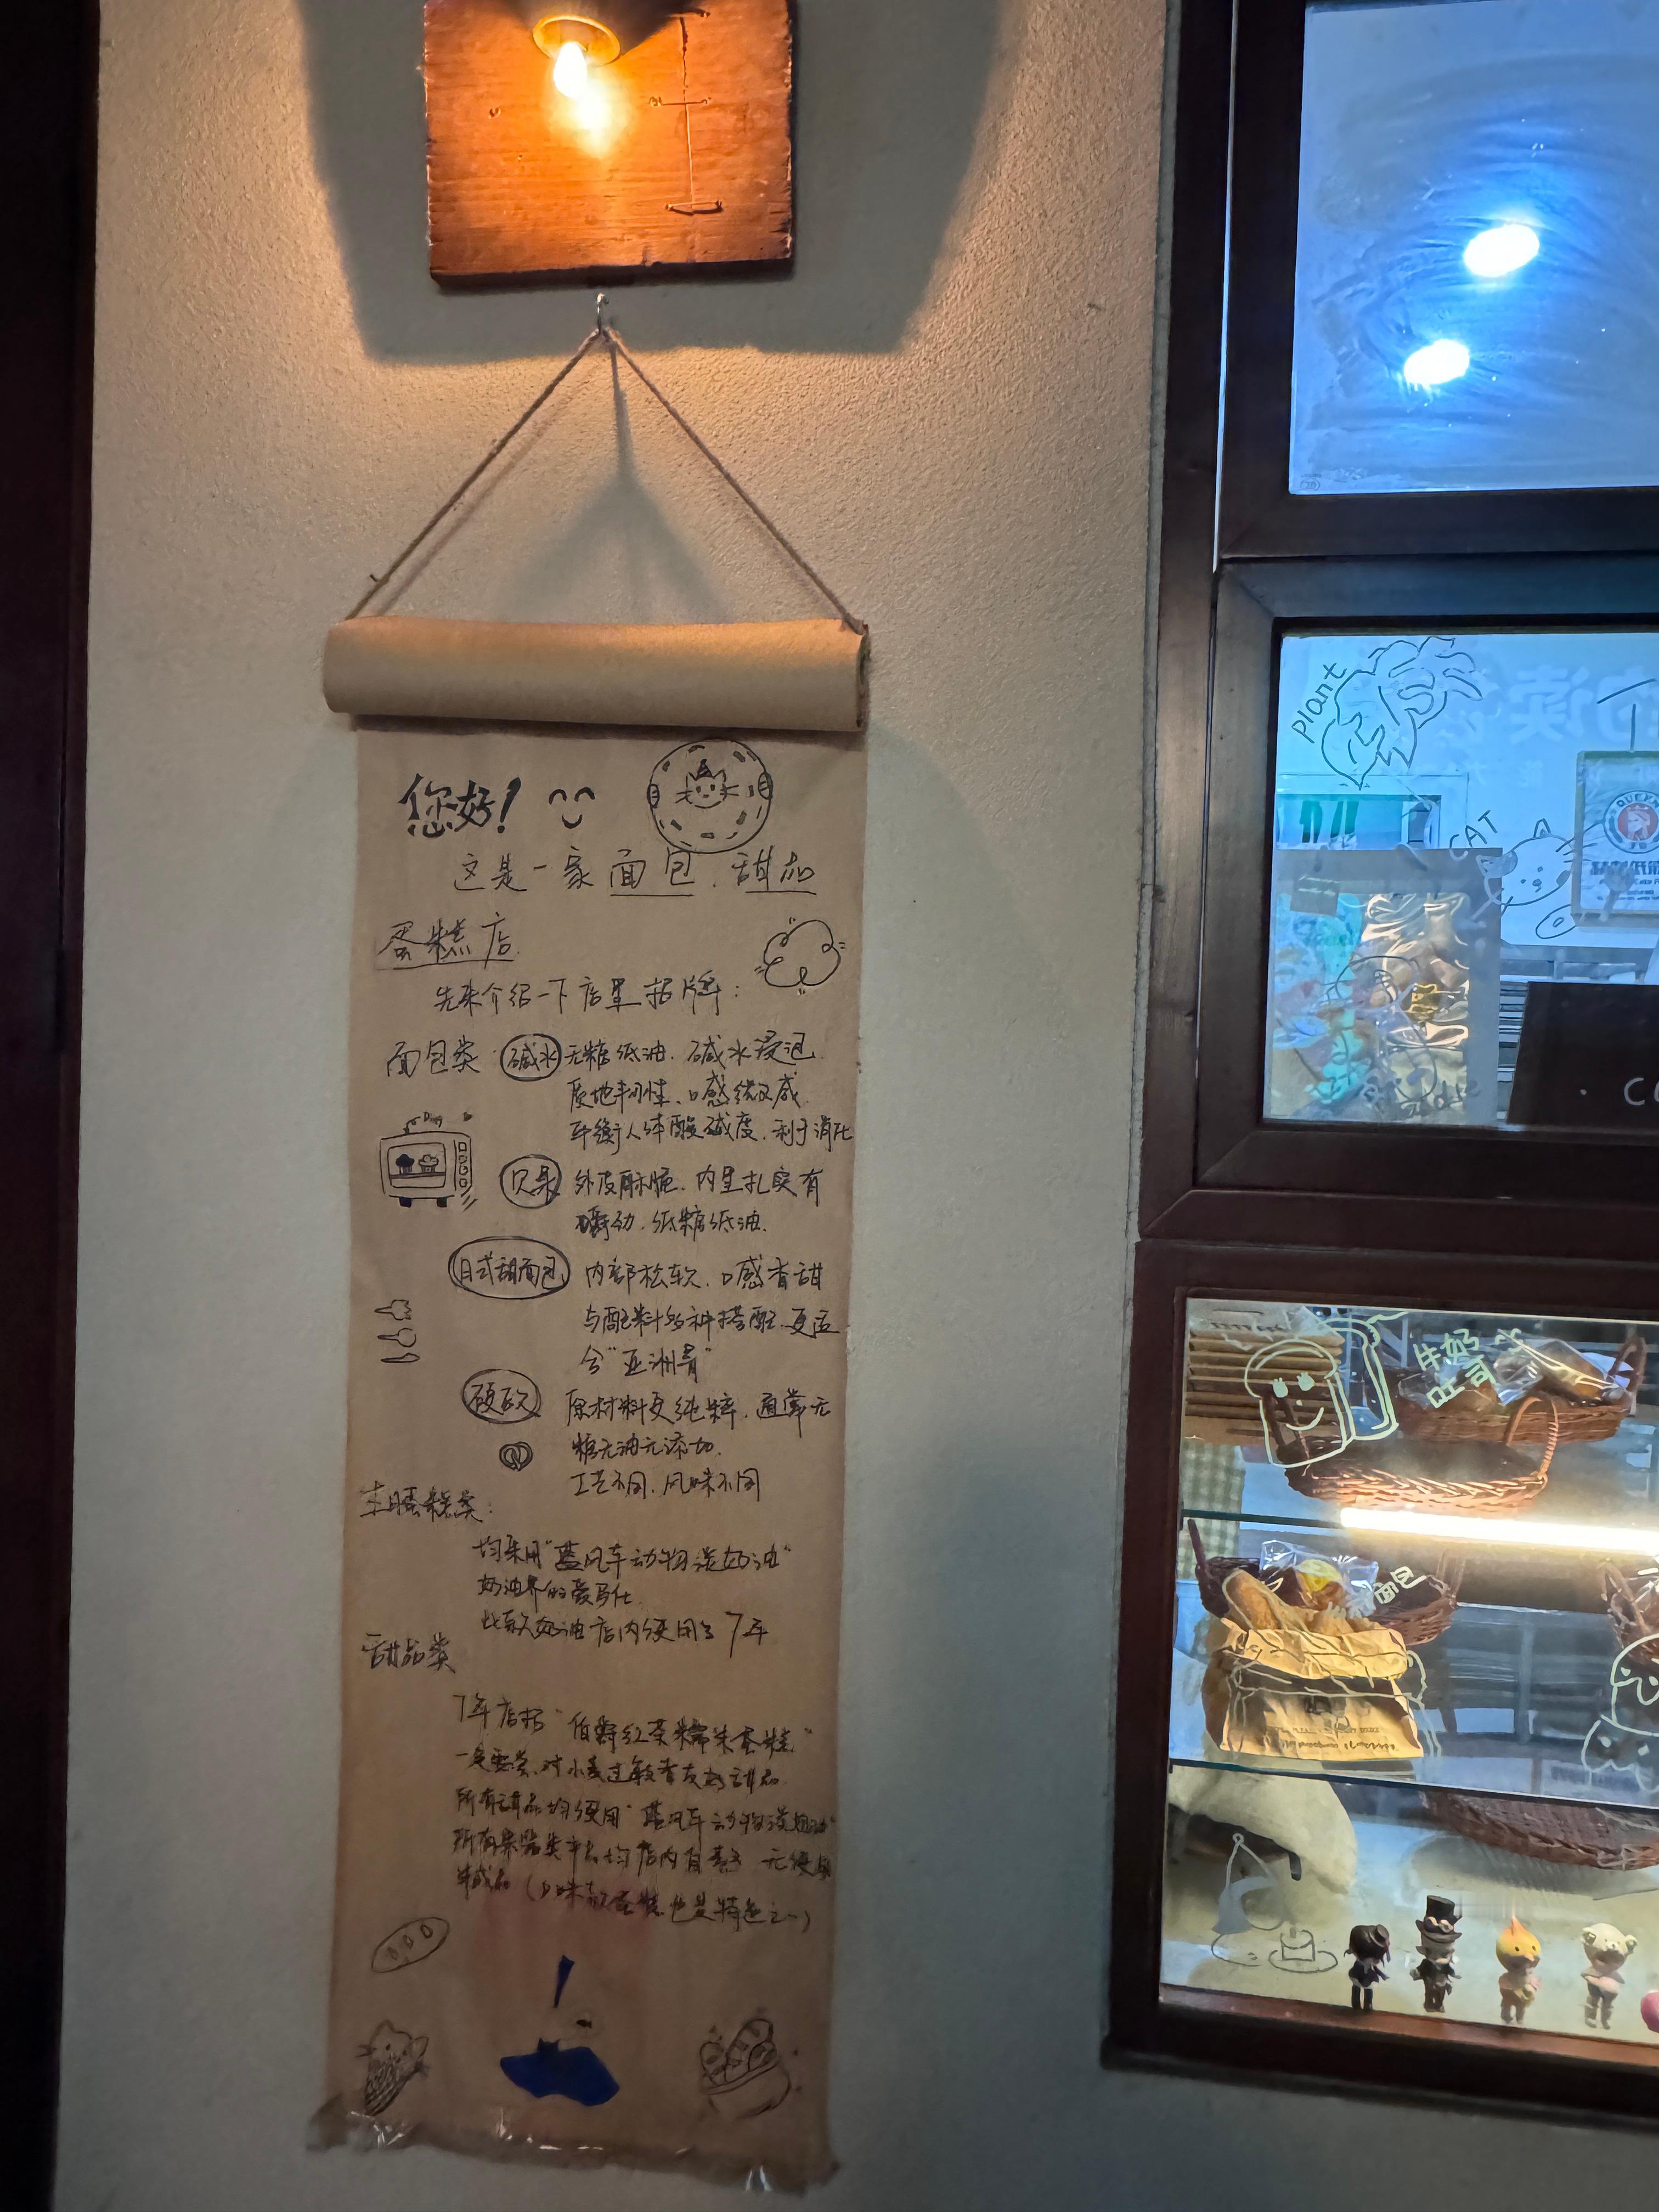 您好!
这是一家面包.甜品
蛋糕店.
先来介绍一下店里招牌:
面包类 碱水 无糖低油.碱水浸泡
质地韧性、口感绵
平衡人体酸碱度.利于消化
贝果 外皮酥脆.内里扎实有
嚼劲.低糖低油.
日式甜面包 内部松软.口感香甜
与配料多种搭配.更适
合"亚洲胃"
硬欧 原材料更纯粹.通常无
糖无油无添加.
工艺不同.风味不同
生日蛋糕类:
均采用"蓝风车动物淡奶油"
奶油界的爱马仕
此款奶油店内使用了7年
甜品类
7年店招"伯爵红茶糯米蛋糕"
一定要尝、对小麦过敏者友好甜品
所有甜品均使用"蓝风车动物淡奶油"
所有果酱类 均店内自熬 无使用
半成品 ( 也是特色之一)
plant
CAT
牛奶
吐司
面包